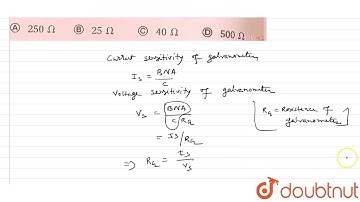 Ⓐ 250 Ω Ⓑ 25 Ω Ⓒ 40 Ω Ⓓ 500 Ω
Current sensitivity of galvanometer
I_s = BNA/C
Voltage sensitivity of galvanometer
V_s = BNA/C R_G
R_G = Resistance of galvanometer
= I_s/R_G
⇒ R_G = I_s/V_s
doubtnut